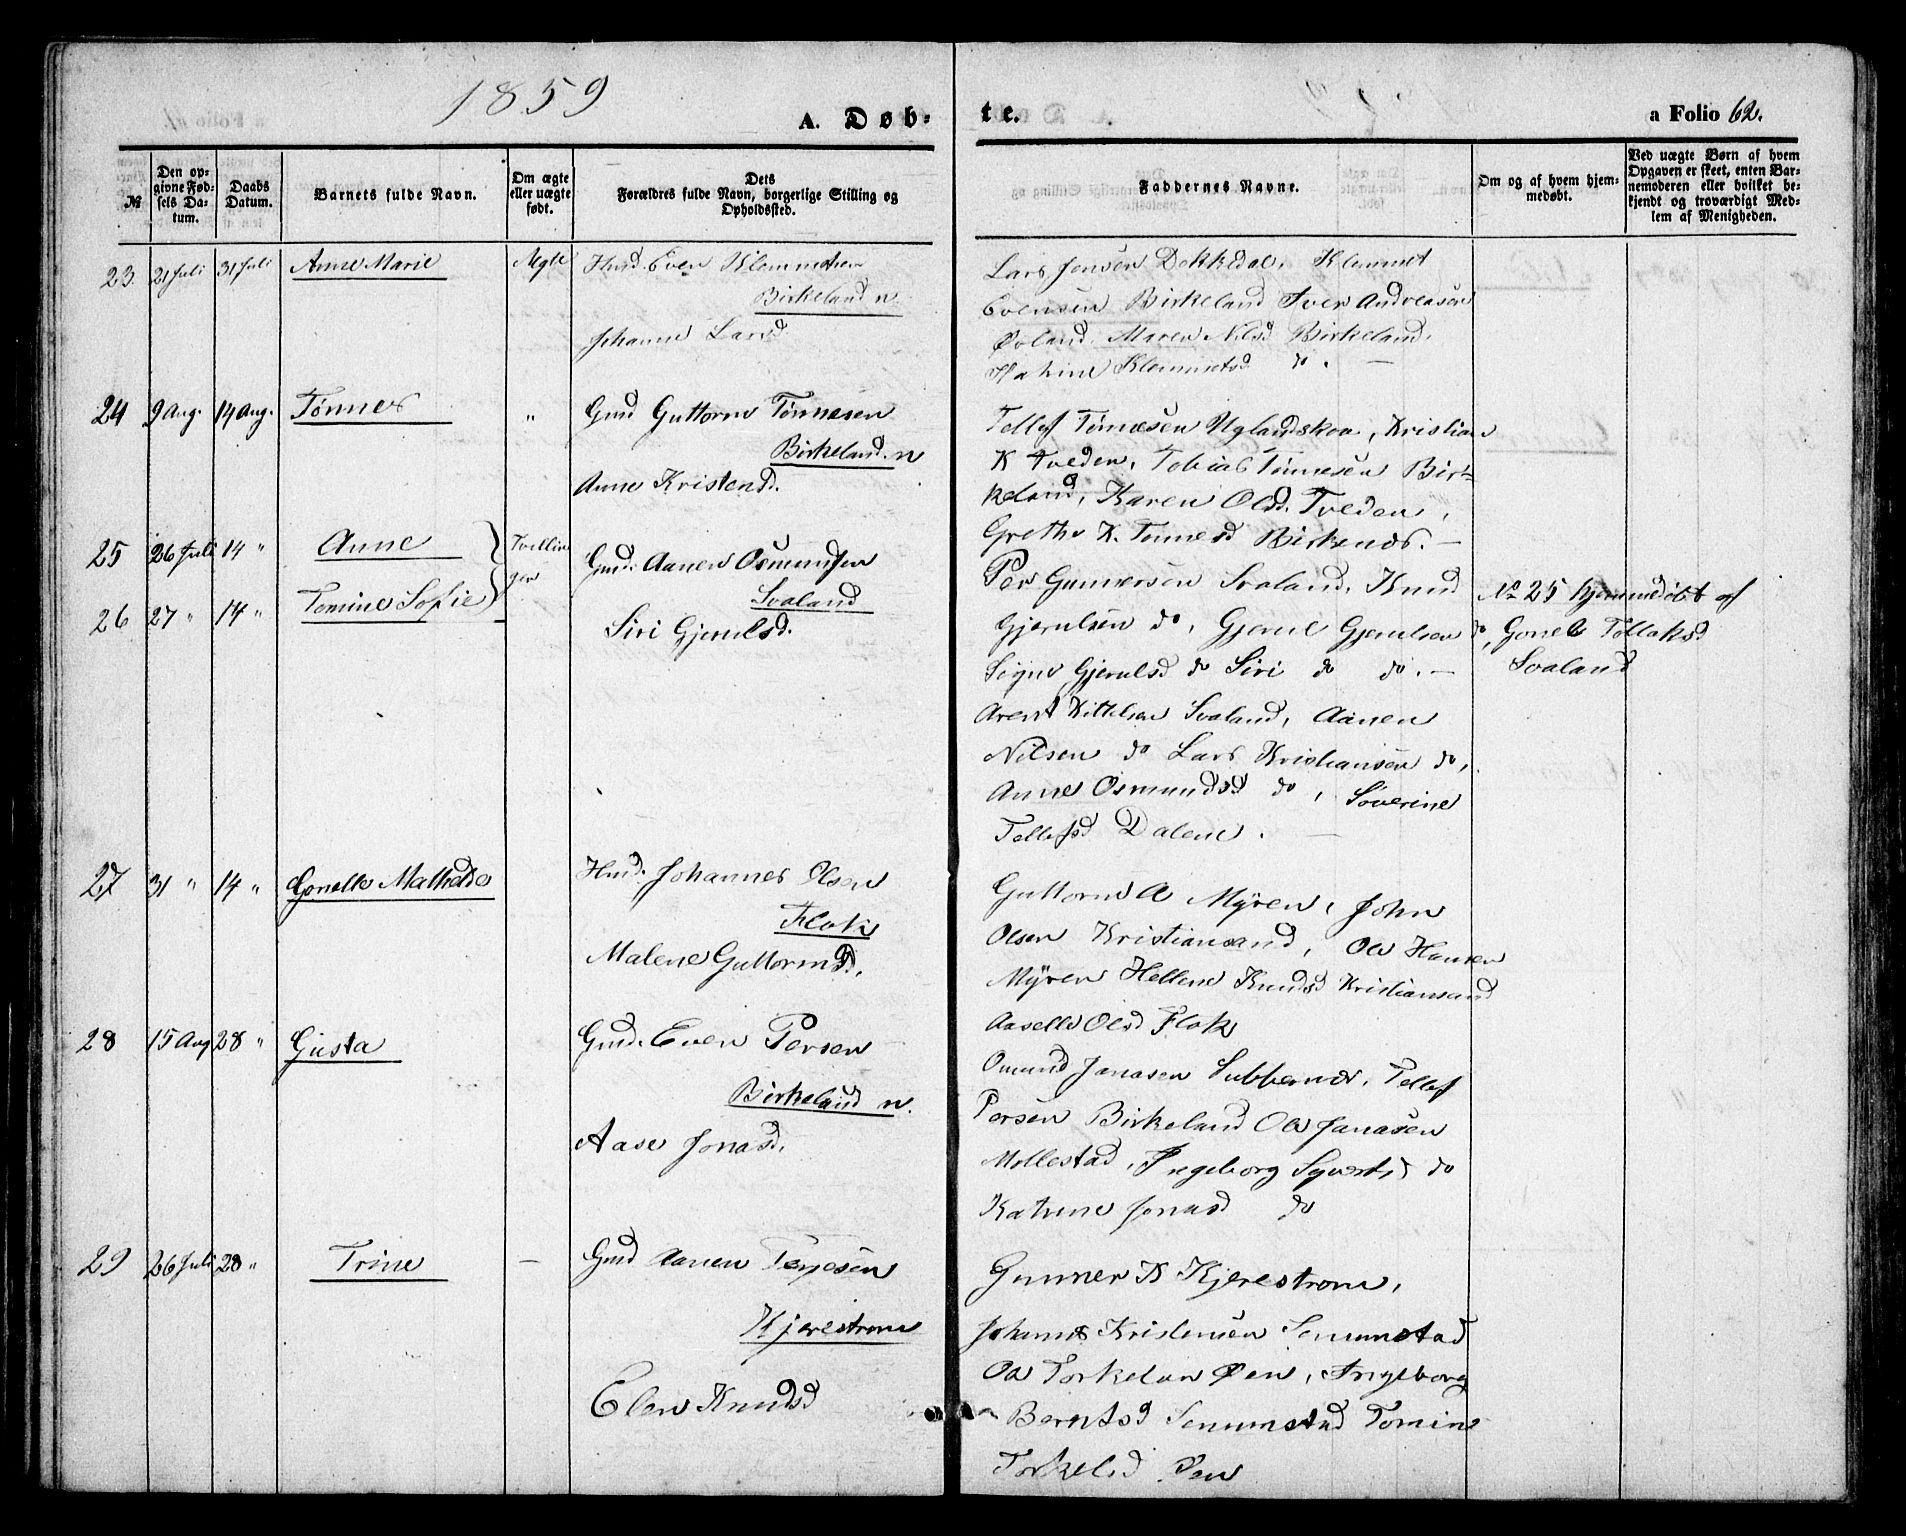 1859
A. Døb-
te.
a Folio 62.
№
Den op-
givne Fød-
sels Da-
tum.
Daabs
Datum.
Barnets fulde Navn.
Om ægte
eller uægte
født.
Dets
Forældres fulde Navn, borgerlige Stilling og
Opholdssted.
Faddernes Navne.
Om og af hvem hjem-
medøbt.
Ved uægte Børn af hvem
Opgaven er skeet, enten Bar-
nemoderen eller hvilket be-
kjendt og troværdigt Med-
lem af Menigheden.
23 21 Juli 31 Juli Anne Marie Ægte Husd Even Klemmetsen
Birkeland n
Johanne Larsd
Lars Jensen Dekkedal, Klemmet
Evensen Birkeland Iver Andreasen
Øvland Maren Nilsd Birkeland.
Klemmetsd do. —
24 9 Aug. 14 Aug. Tønnes " Gmd Guttorm Tønnesen
Birkeland. n
Anne Kristend.
Tellef Tønnesen Uglandskon, Kristian
K Tveden, Tobias Tønnesen Bir-
keland, Karen Olsd. Tveden,
Grethe K. Tønnesd Birkends. —
25 26 Juli 14 " Anne Tvillin
ger
26 27 " 14 " Tomine Sofie
Gmd. Aanen Osmundsen
Svaland
Siri Gjerulsd.
Per Gunnersen Svaland, Knud
Gjerulsen do, Gjerul Gjerulsen do,
Signe Gjerulsd do Siri do do. —
Arent Kittelsen Svaland, Aanen
Nilsen do Lars Kristiansen do,
Anne Osmundsd do, Severine
Tellefsd Dalene. —
№ 25 hjemmedøbt af
Gonel Tollaksd
Svaland
27 31 " 14 " Gonelle Mathilde
Husd. Johannes Olsen
Flak
Malene Guttormsd.
Guttorm A Myren, John
Olsen Kristiansand, Ole Hansen
Myren Hellene Knudsd Kristiansand
Aaselle Olsd Flak
28 15 Aug 28 " Gusta
Gmd. Even Persen
Birkeland n.
Aase Jonasd.
Omund Jonasen Tellef
Persen Birkeland Ole Jonasen
Mollestad, Ingeborg Syvertsd do
Katrine Jonasd do
29 26 Juli 28 " Trine —
Gmd Aanen Terjesen
Kjærestrøm
Elen Knudsd
Gunner K Kjerestrøm,
Johannes Kristensen Senumstad
Ole Torkelsen Øen, Ingeborg
Berntsd Senumstad Tomine
Torkelsd Øen